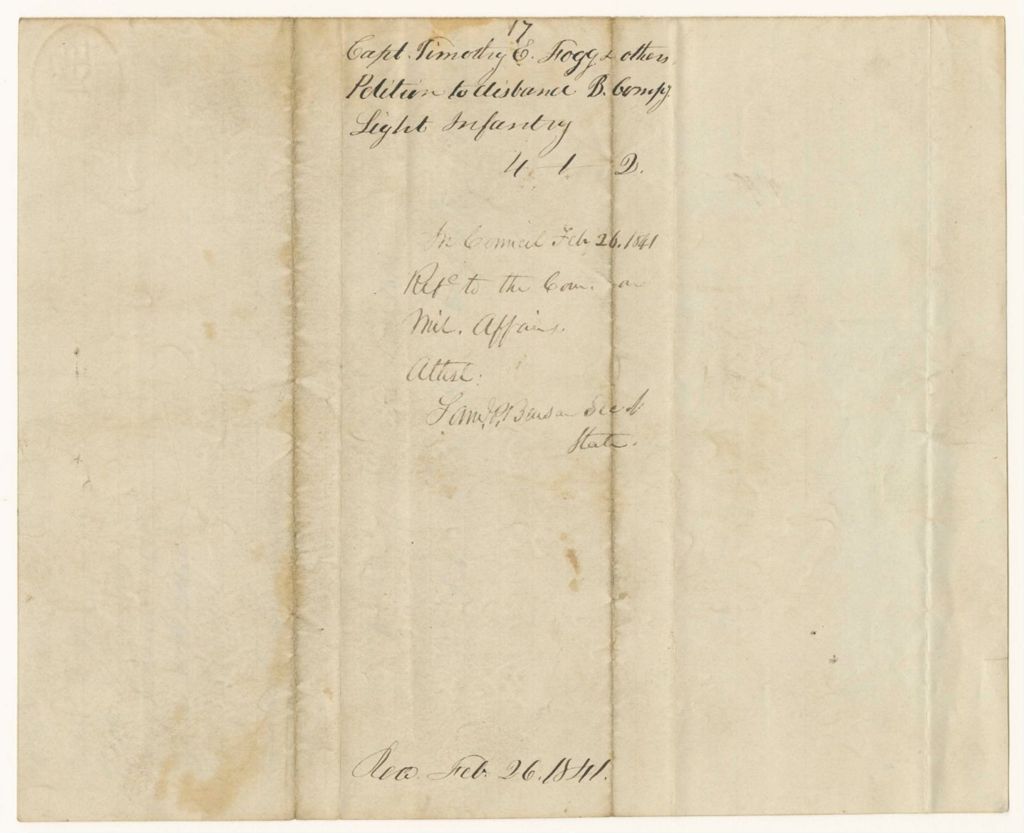 17
Capt. Timothy E. Fogg & others
Petition to disband B. Compy
Light Infantry
4 - 1 - 2.
In Council Feb 26. 1841
Refd to the Com. on
Mil. Affairs.
Attest:
Saml. P. Benson Sec of
State.
Recd. Feb. 26. 1841.